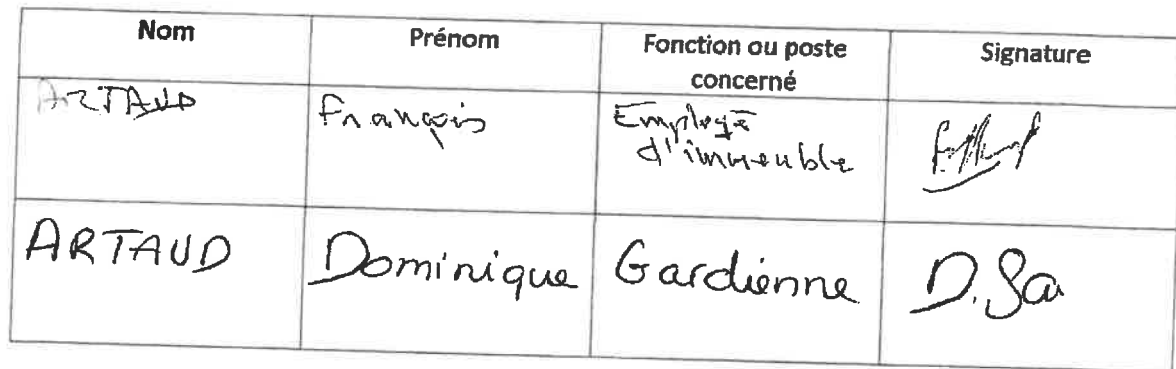 Nom Prénom Fonction ou poste concerné Signature
ARTAUD François Employé d'immeuble
ARTAUD Dominique Gardienne D. Sa